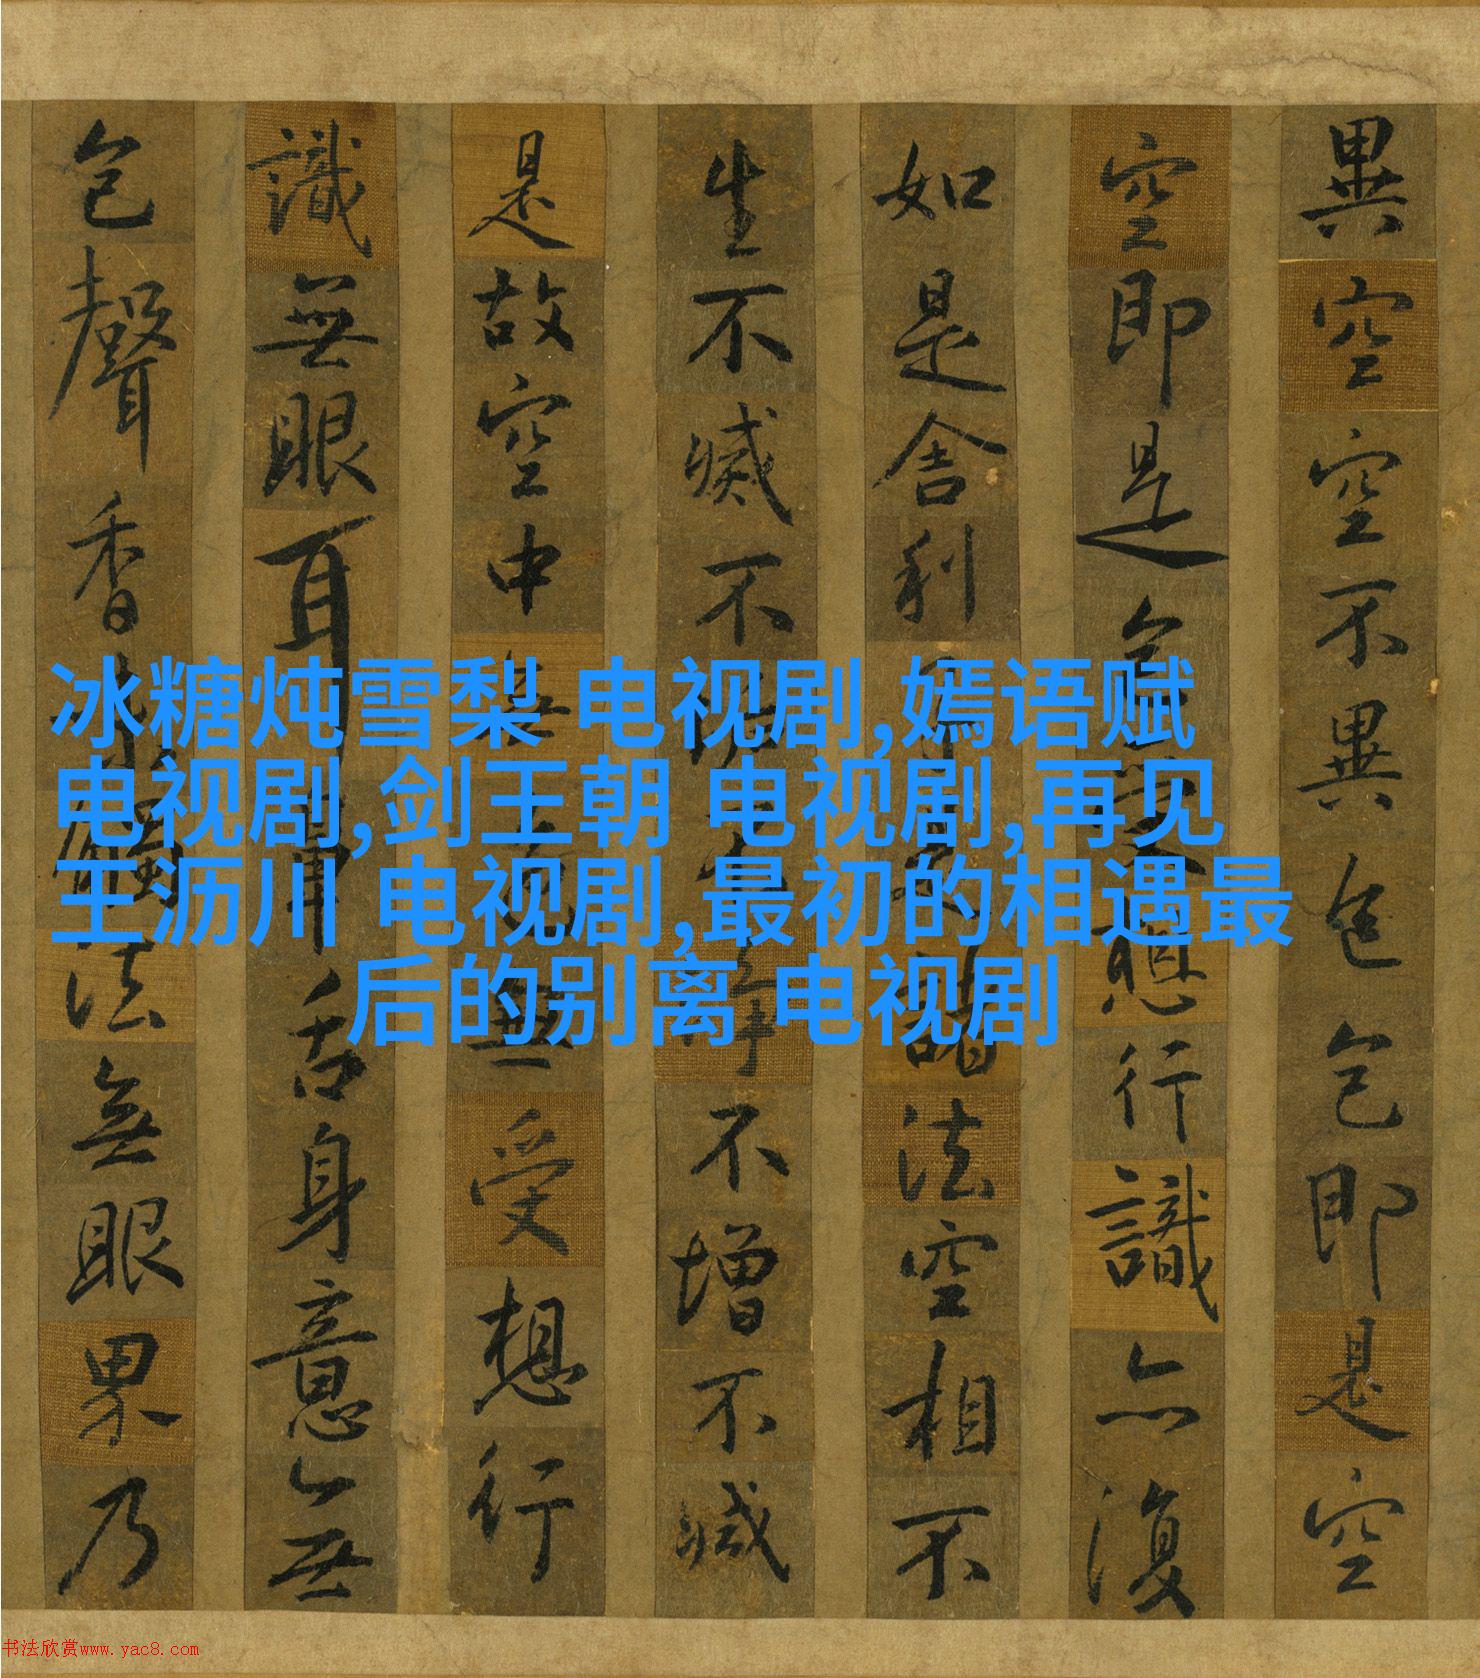 異空空不異色色即是空
空即是色受想行識亦復
如是舍利是諸法空相不
生不滅不垢不淨不增不減
是故空中無色無受想行
識無眼耳鼻舌身意無
色聲香味觸法無眼界乃
冰糖炖雪梨 电视剧,嫣语赋
电视剧,剑王朝 电视剧,再见
王沥川 电视剧,最初的相遇最
后的别离 电视剧
书法欣赏www.yac8.com